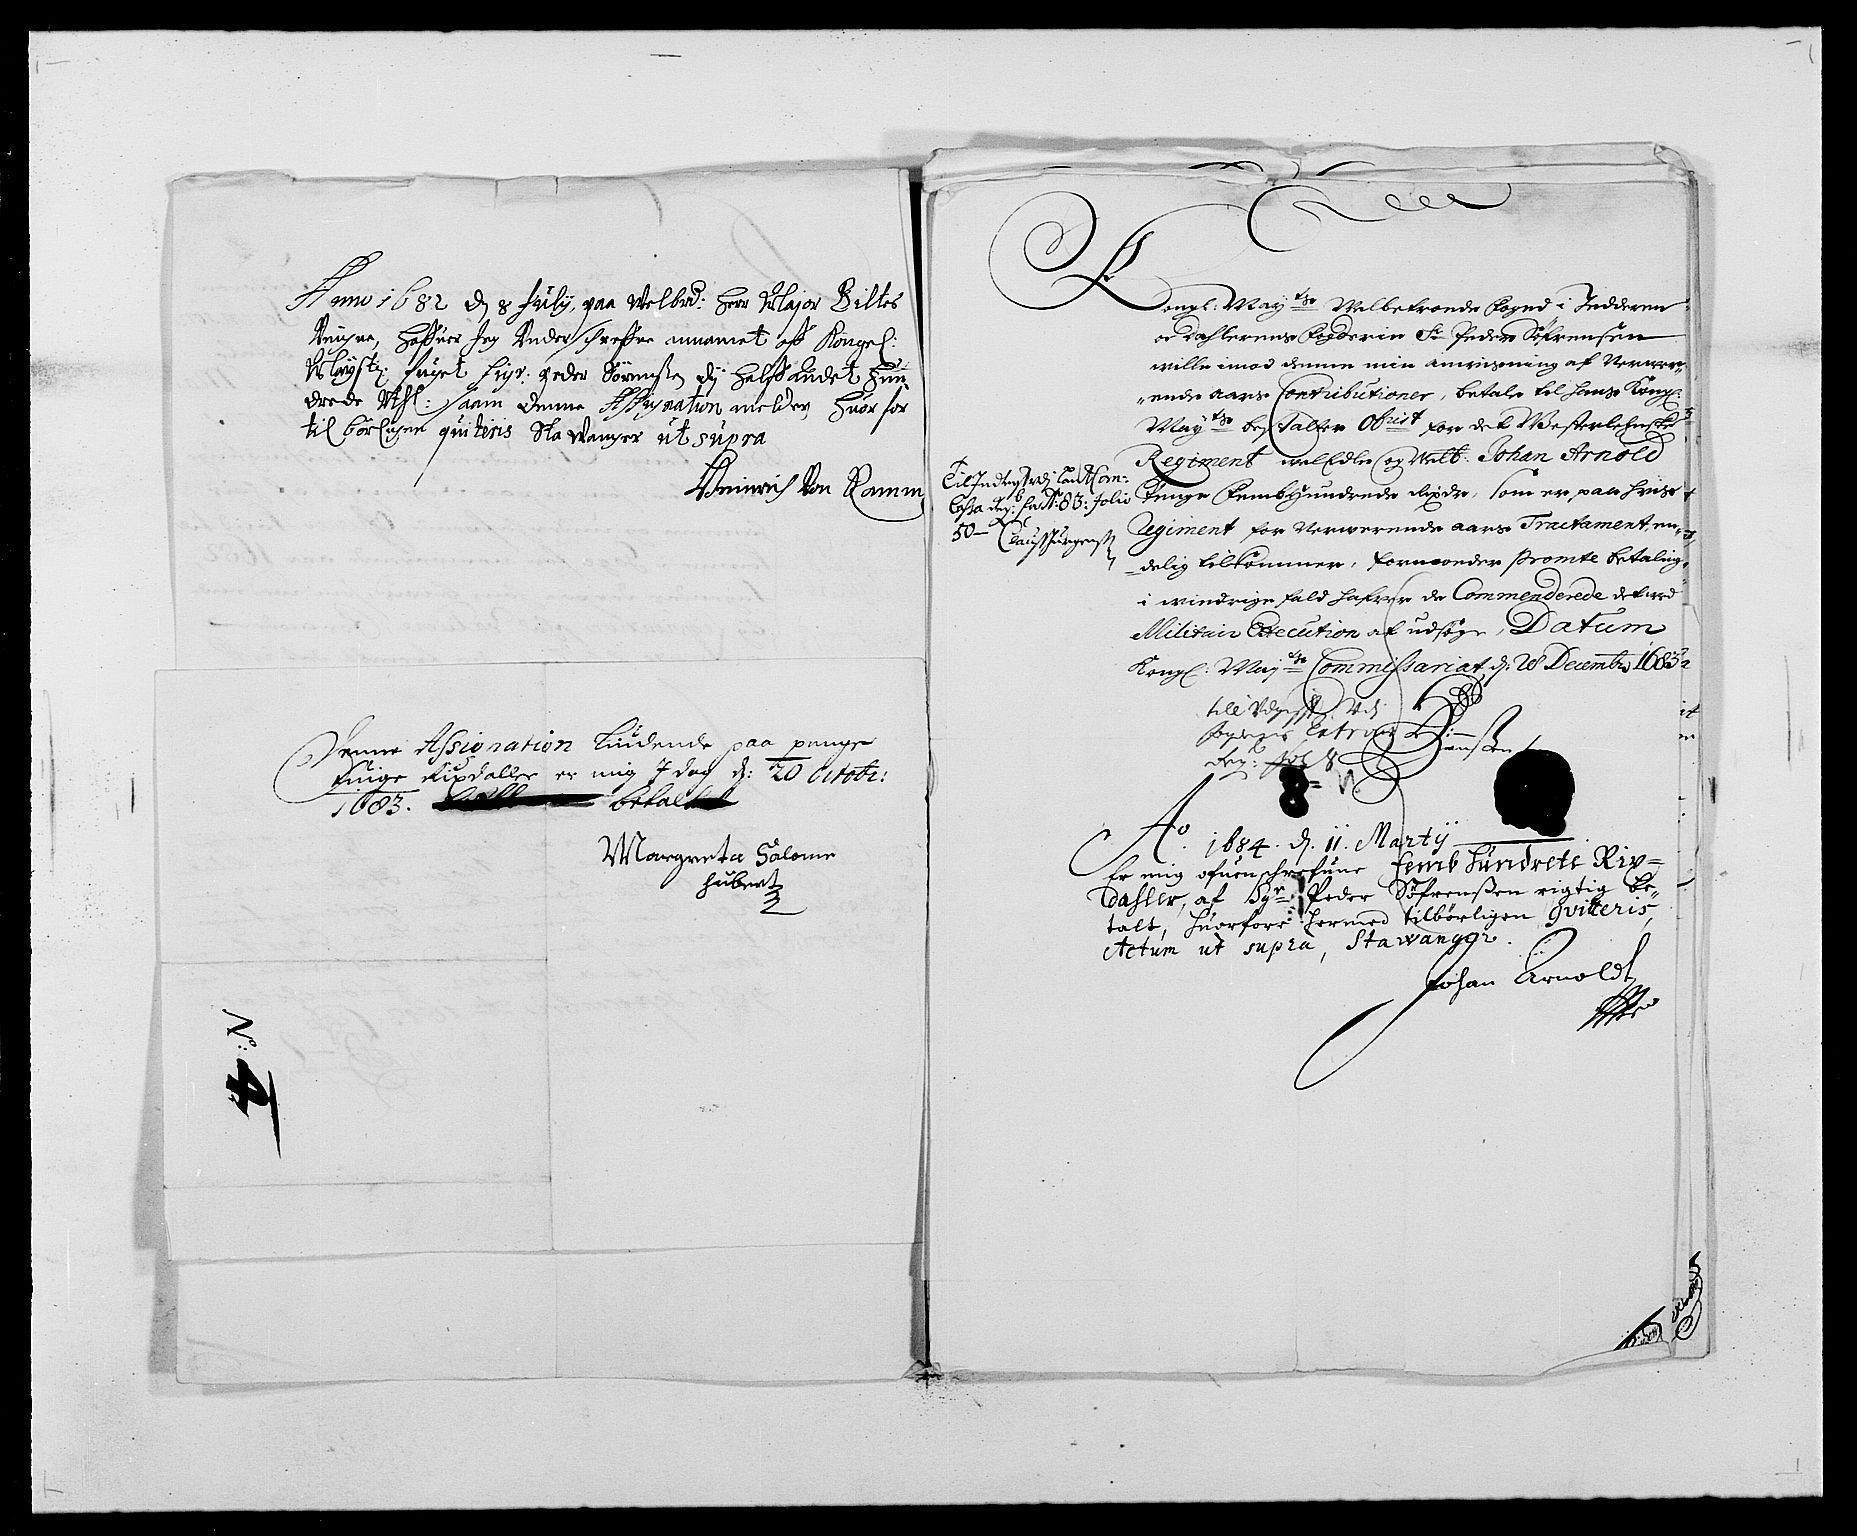 Anno 1682 d 8 Julÿ, paa Welbrd: Herr Major Biltes
Vegne, Haffuer Jeg Underschreffne annamet aff Kongel:
Maÿstz. fuget Sigr: Peder Sörensen dj halffandet Hun¬
drede Rdl: saam denne Assignation melder, Huor for
tilbörligen quiteris Sta Wanger ut supra
Heinrich Von Ramm
Denne Assignation liudende paa penge
tiuge Rixdaller er mig J dag d: 20 Octobr:
1683. betalt
Margreta Salome
Hubert
N: 4
Kongl: Maytz Welbetroede Foged i Jedderen
oc Dahlerens Fogderie Sr Peder Söfrensen
wille imod denne min anwisning af Nerwer¬
ende aars Contributioner, betale til hans Kongl:
Maytz bestalter Obrist for det Westerlehnske
Regiment welEdle og Welb: Johan Arnold
Penge Femb Hundrede Rixdr, som er paa hans
Regiment for Nerwerende aars Tractament, en¬
delig tilkommer, formoder Promte betaling,
i widrige fald hafwer de Commenderede det wed
Militair Execution at udsöge, Datum
Kongl: Maytz Commissariat, d: 28 Decembr 1683
Til Indtegt udj Land Com:
Cassa Reg: for A: 83: folio
50 Claus Jürgens
till Udgifft Udj
Hansen
8
Ao. 1684. d. 11. Martÿ
Er mig ofuenschrefune Femb Hundrete Rix=
dahler, af Sgr. Peder Söfrensen rigtig be¬
talt, huorfore hermed tilbörligen Qvitteris,
Actum ut supra, Stawanger.
Johan Arnoldt